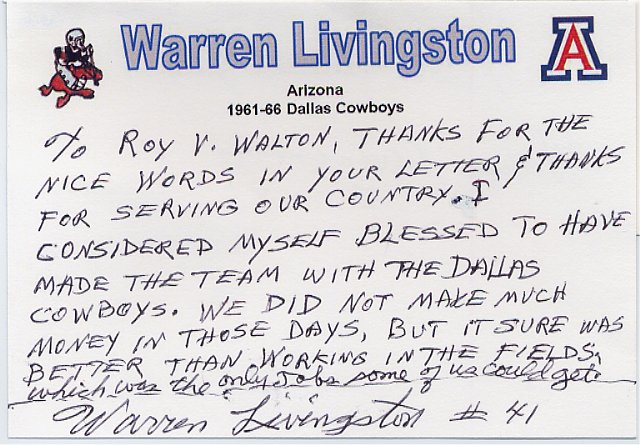 Warren Livingston
A
Arizona
1961-66 Dallas Cowboys
To Roy V. WALTON, THANKS FOR THE
NICE WORDS IN YOUR LETTER & THANKS
FOR SERVING OUR COUNTRY. I
CONSIDERED MYSELF BLESSED TO HAVE
MADE THE TEAM WITH THE DALLAS
COWBOYS. WE DID NOT MAKE MUCH
MONEY IN THOSE DAYS, BUT IT SURE WAS
BETTER THAN WORKING IN THE FIELDS,
which was the only Jobs some of us could get.
Warren Livingston # 41